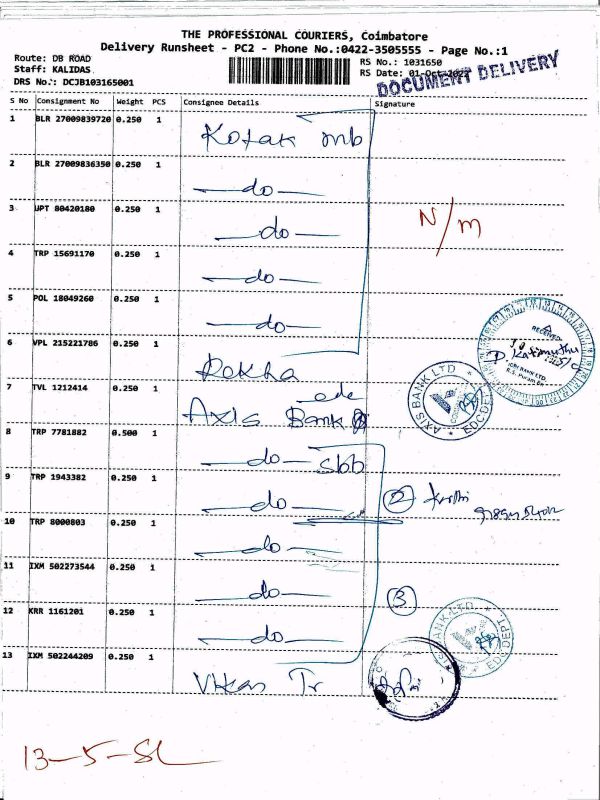 THE PROFESSIONAL COURIERS, Coimbatore
Delivery Runsheet - PC2 - Phone No.:0422-3505555 - Page No.:1
Route: DB ROAD
Staff: KALIDAS
DRS No.: DCJB103165001
RS No.: 1031650
RS Date: 01-Oct-2022
DOCUMENT DELIVERY
S No Consignment No Weight PCS Consignee Details Signature
1 BLR 27009839720 0.250 1 Kotak mb
2 BLR 27009836350 0.250 1 do
3 UPT 80420180 0.250 1 do
N/m
4 TRP 15691170 0.250 1 do
5 POL 18049260 0.250 1 do
6 VPL 215221786 0.250 1 Rekha
RECEIVED
IDBI BANK LTD
7 TVL 1212414 0.250 1 Axis Bank
AXIS BANK LTD
8 TRP 7781882 0.500 1 do Sbb
9 TRP 1943382 0.250 1 do
2
10 TRP 8000803 0.250 1 do
11 IXM 502273544 0.250 1 do
3
12 KRR 1161201 0.250 1 do
AXIS BANK LTD
13 IXM 502244209 0.250 1 Vikas Tr
13-5-SL